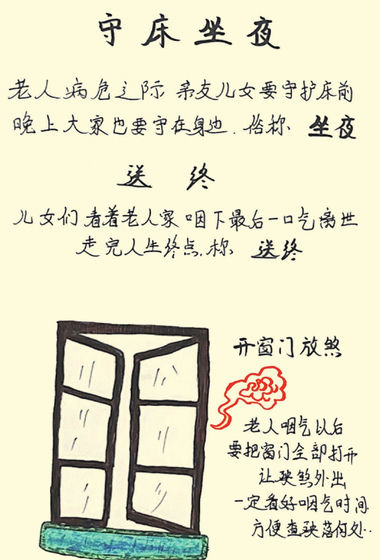 守床坐夜
老人病危之际 亲友儿女要守护床前
晚上大家也要守在身边.俗称 坐夜
送终
儿女们看着老人家咽下最后一口气离世
走完人生终点.称 送终
开窗门放煞
老人咽气以后
要把窗门全部打开
让殃煞外出
一定看好咽气时间
方便查殃落何处..